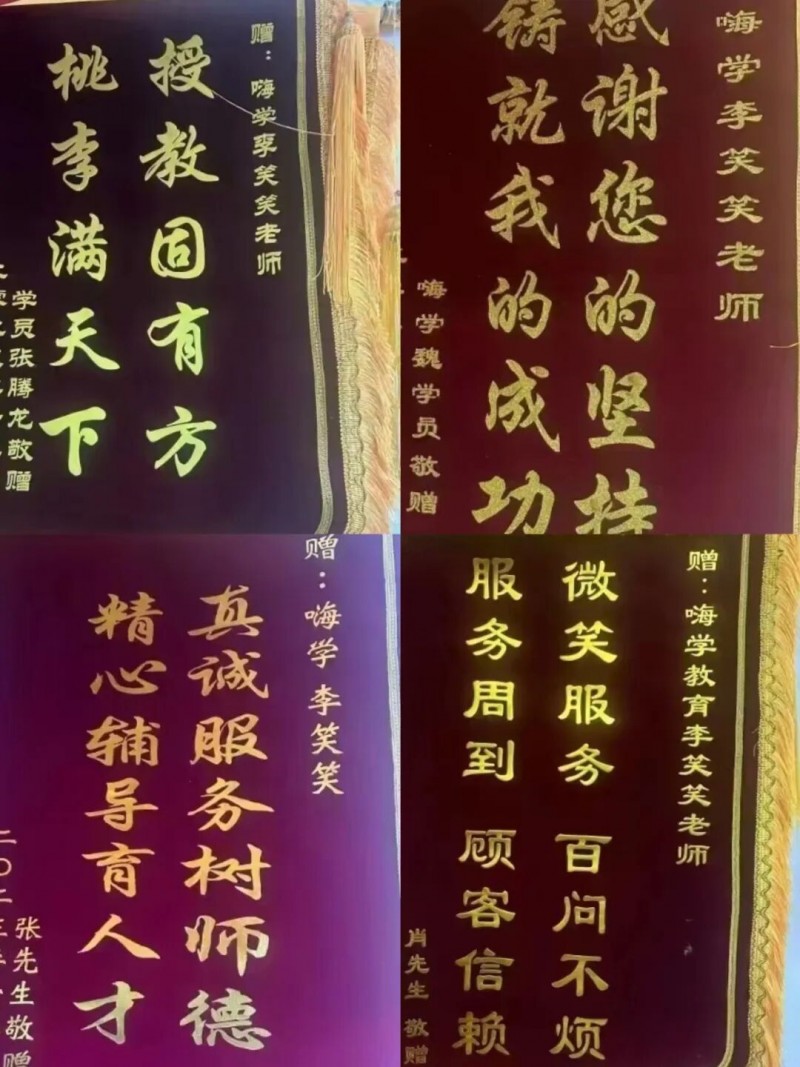 赠：嗨学李笑笑老师
授教固有方
桃李满天下
学员张腾龙敬赠
嗨学李笑笑老师
感谢您的坚持
铸就我的成功
嗨学魏学员敬赠
赠：嗨学李笑笑
真诚服务树师德
精心辅导育人才
张先生敬赠
二〇二三年
赠：嗨学教育李笑笑老师
微笑服务 百问不烦
服务周到 顾客信赖
肖先生 敬赠